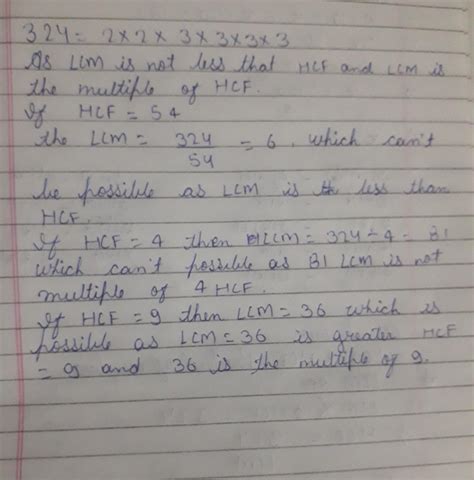 324 = 2×2× 3×3×3×3
As LCM is not less that HCF and LCM is
the multiple of HCF.
If HCF = 54
the LCM = 324/54 = 6, which can't
be possible as LCM is less than
HCF.
If HCF = 4 then LCM = 324 ÷ 4 = 81
which can't possible as 81 LCM is not
multiple of 4 HCF.
If HCF = 9 then LCM = 36 which is
possible as LCM = 36 is greater HCF
= 9 and 36 is the multiple of 9.